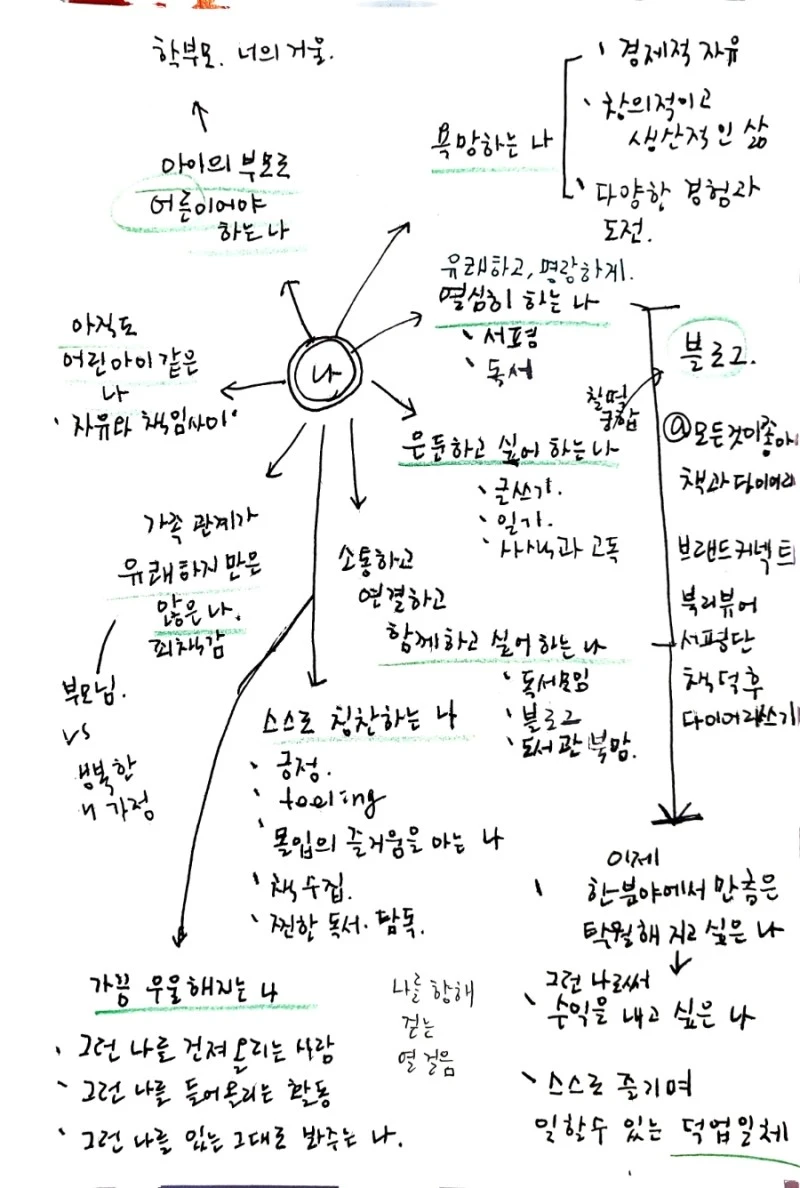 학부모. 너의 거울.
아이의 부모로
어른이어야
하는 나
욕망하는 나
경제적 자유
창의적이고
생산적인 삶
다양한 경험과
도전.
유쾌하고, 명랑하게.
열심히 하는 나
서평
독서
나
아직도
어린아이 같은
나
자유와 책임사이
블로그.
찰떡
궁합
@모든것이좋아
책과 다이어리
브랜드커넥트
북리뷰어
서평단
책덕후
다이어리쓰기
은둔하고 싶어 하는 나
글쓰기.
일기.
사색과 고독
가족 관계가
유쾌하지 만은
않은 나.
죄책감
부모님.
vs
행복한
내 가정
소통하고
연결하고
함께하고 싶어 하는 나
독서모임
블로그
도서관 북맘.
스스로 칭찬하는 나
긍정.
몰입의 즐거움을 아는 나
책 수집.
찐한 독서. 탐독.
이제
한분야에서 만큼은
탁월해 지고 싶은 나
그런 나로써
수익을 내고 싶은 나
스스로 즐기며
일할수 있는 덕업일체
가끔 우울해지는 나
그런 나를 건져올리는 사람
그런 나를 들어올리는 활동
그런 나를 있는 그대로 봐주는 나.
나를 향해
걷는
열 걸음